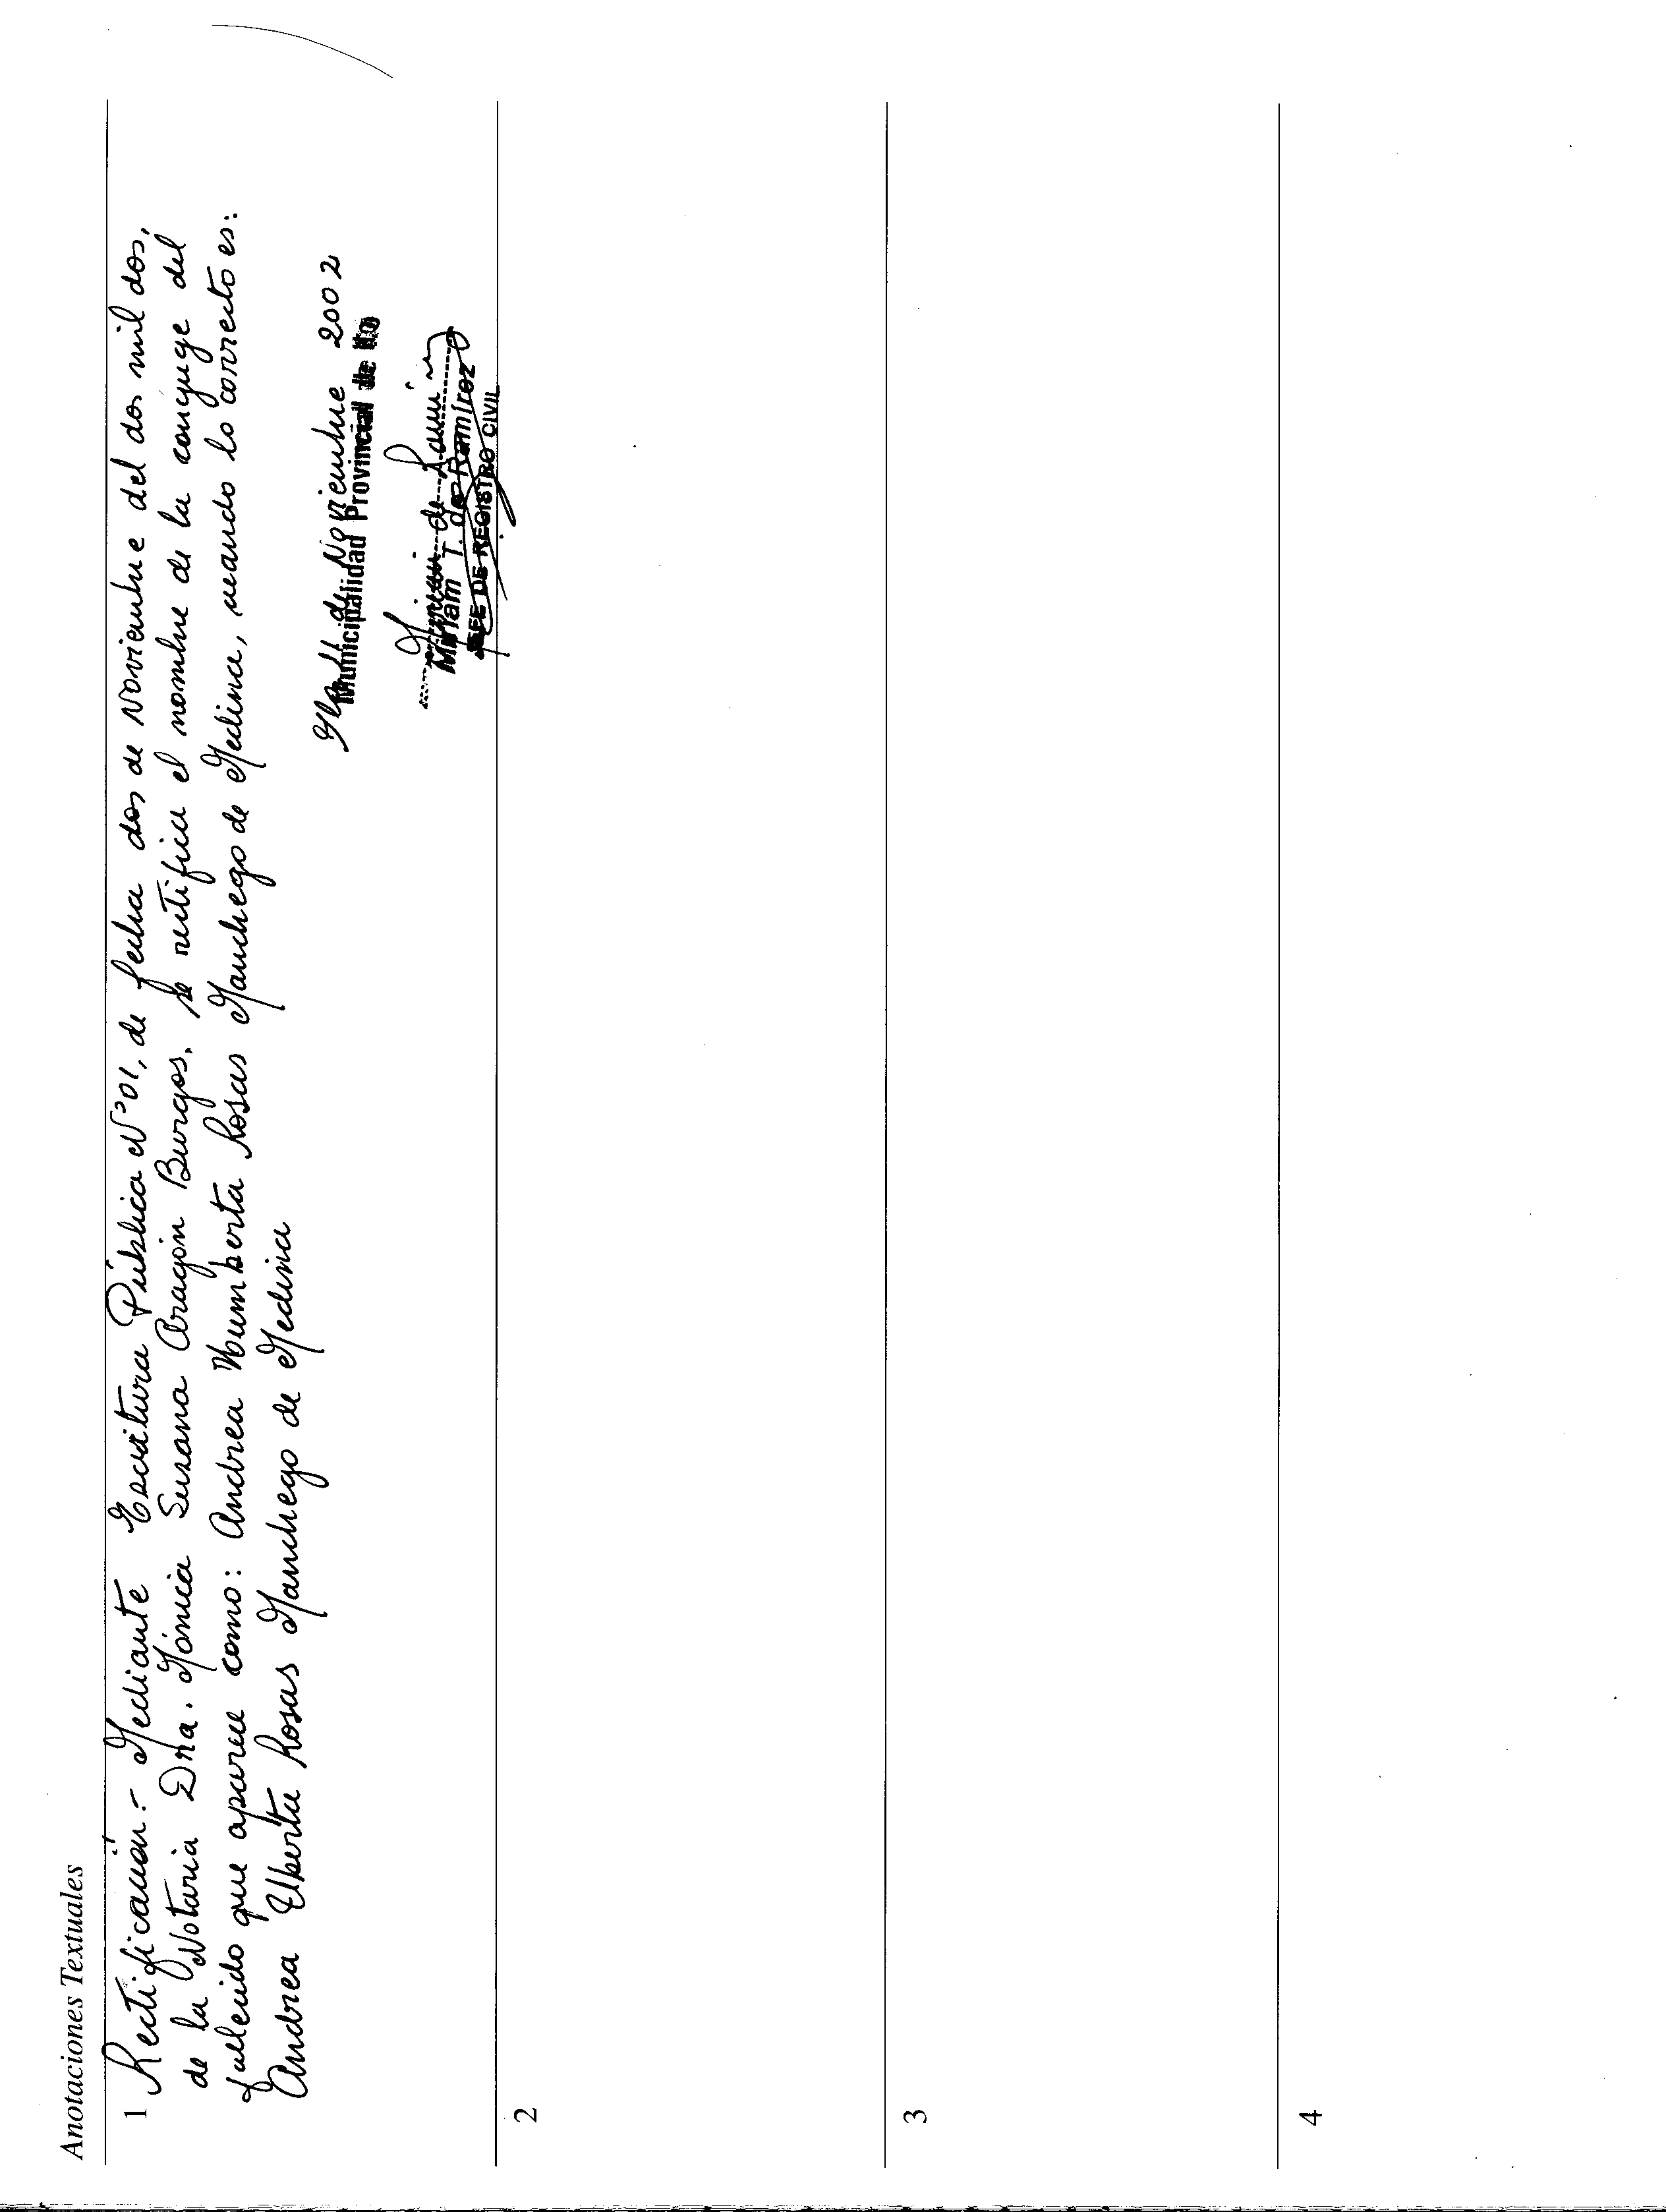 Anotaciones Textuales
1 Rectificación.- Mediante Escritura Pública N°01, de fecha dos de Noviembre del dos mil dos,
de la Notaria Dra. Mónica Susana Aragón Burgos, se retifica el nombre de la conyuge del
fallecido que aparece como: Andrea Humberta Rosas Manchego de Medina, cuando lo correcto es:
Andrea Elberta Rosas Manchego de Medina
Ilo, de Noviembre 2002
Municipalidad Provincial de Ilo
Miriam T. de Ramírez
JEFE DE REGISTRO CIVIL
2
3
4